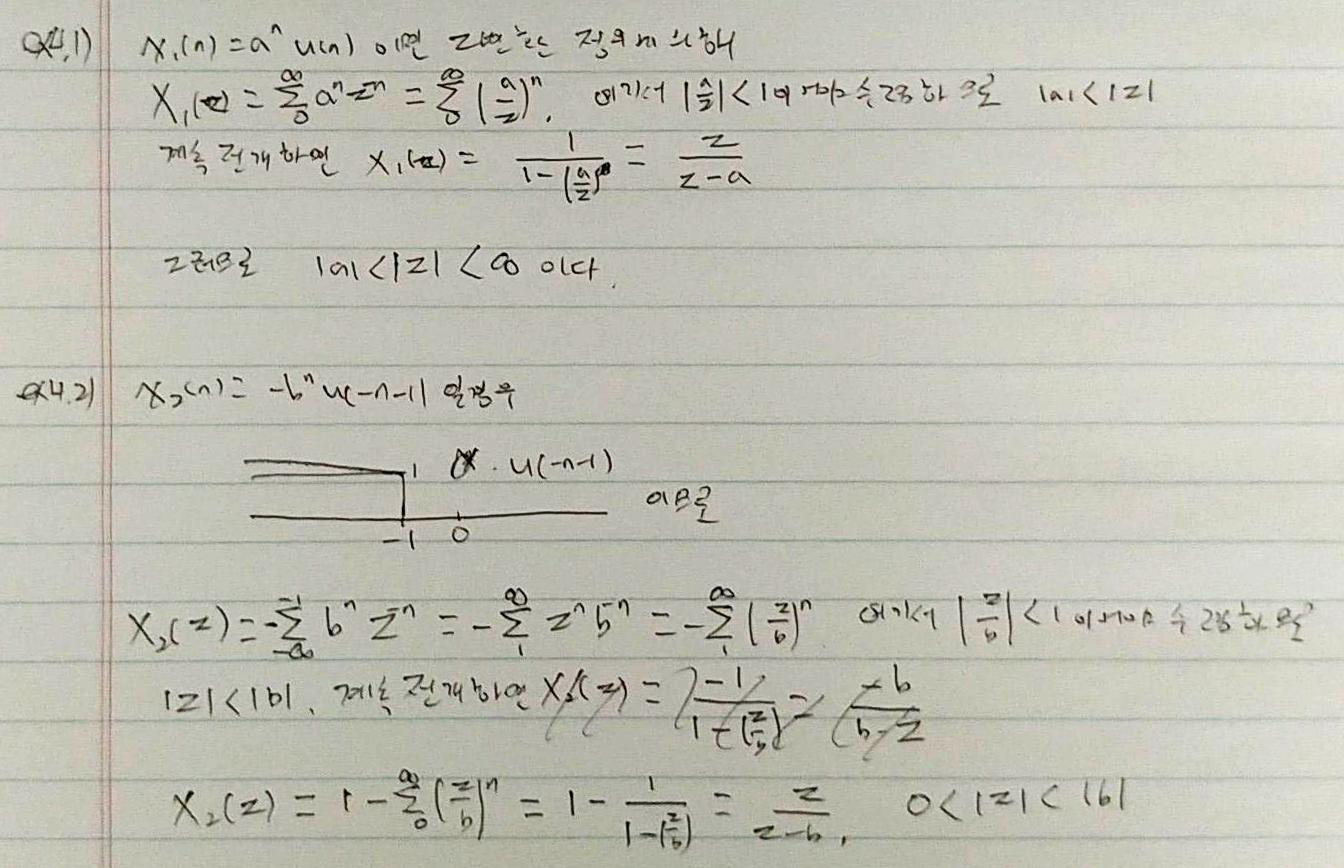 Ex4.1) x₁(n) = aⁿ u(n) 이면 z변환은 정의에 의해
X₁(z) = Σ₀^∞ aⁿ z⁻ⁿ = Σ₀^∞ (a/z)ⁿ, 여기서 |a/z| < 1 이어야 수렴하므로 |a| < |z|
계속 전개하면 X₁(z) = 1/(1-(a/z)) = z/(z-a)
그러므로 |a| < |z| < ∞ 이다.
Ex4.2) x₂(n) = -bⁿ u(-n-1) 일경우
1 . u(-n-1)
이므로
-1 0
X₂(z) = -Σ_{-∞}^{-1} bⁿ z⁻ⁿ = -Σ₁^∞ zⁿ b⁻ⁿ = -Σ₁^∞ (z/b)ⁿ 여기서 |z/b| < 1 이어야 수렴하므로
|z| < |b|, 계속 전개하면 X₂(z) = -1/(1-(z/b)) = -b/(b-z)
X₂(z) = 1 - Σ₀^∞ (z/b)ⁿ = 1 - 1/(1-(z/b)) = z/(z-b), 0 < |z| < |b|